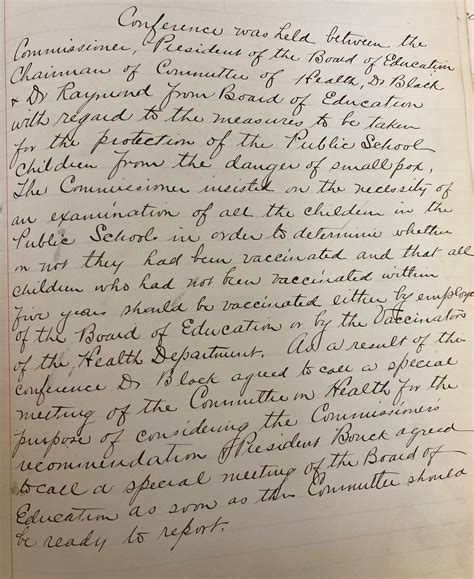 Conference was held between the
Commissioner, President of the Board of Education
Chairman of Committee of Health, Dr Black
& Dr Raymond from Board of Education
with regard to the measures to be taken
for the protection of the Public School
children from the danger of smallpox.
The Commissioner insisted on the necessity of
an examination of all the children in the
Public Schools in order to determine whether
or not they had been vaccinated and that all
children who had not been vaccinated within
five years should be vaccinated either by employe
of the Board of Education or by the Vaccinators
of the Health Department. As a result of the
conference Dr Black agreed to call a special
meeting of the Committee on Health for the
purpose of considering the Commissioner's
recommendation & President Bouck agreed
to call a special meeting of the Board of
Education as soon as this Committee should
be ready to report.